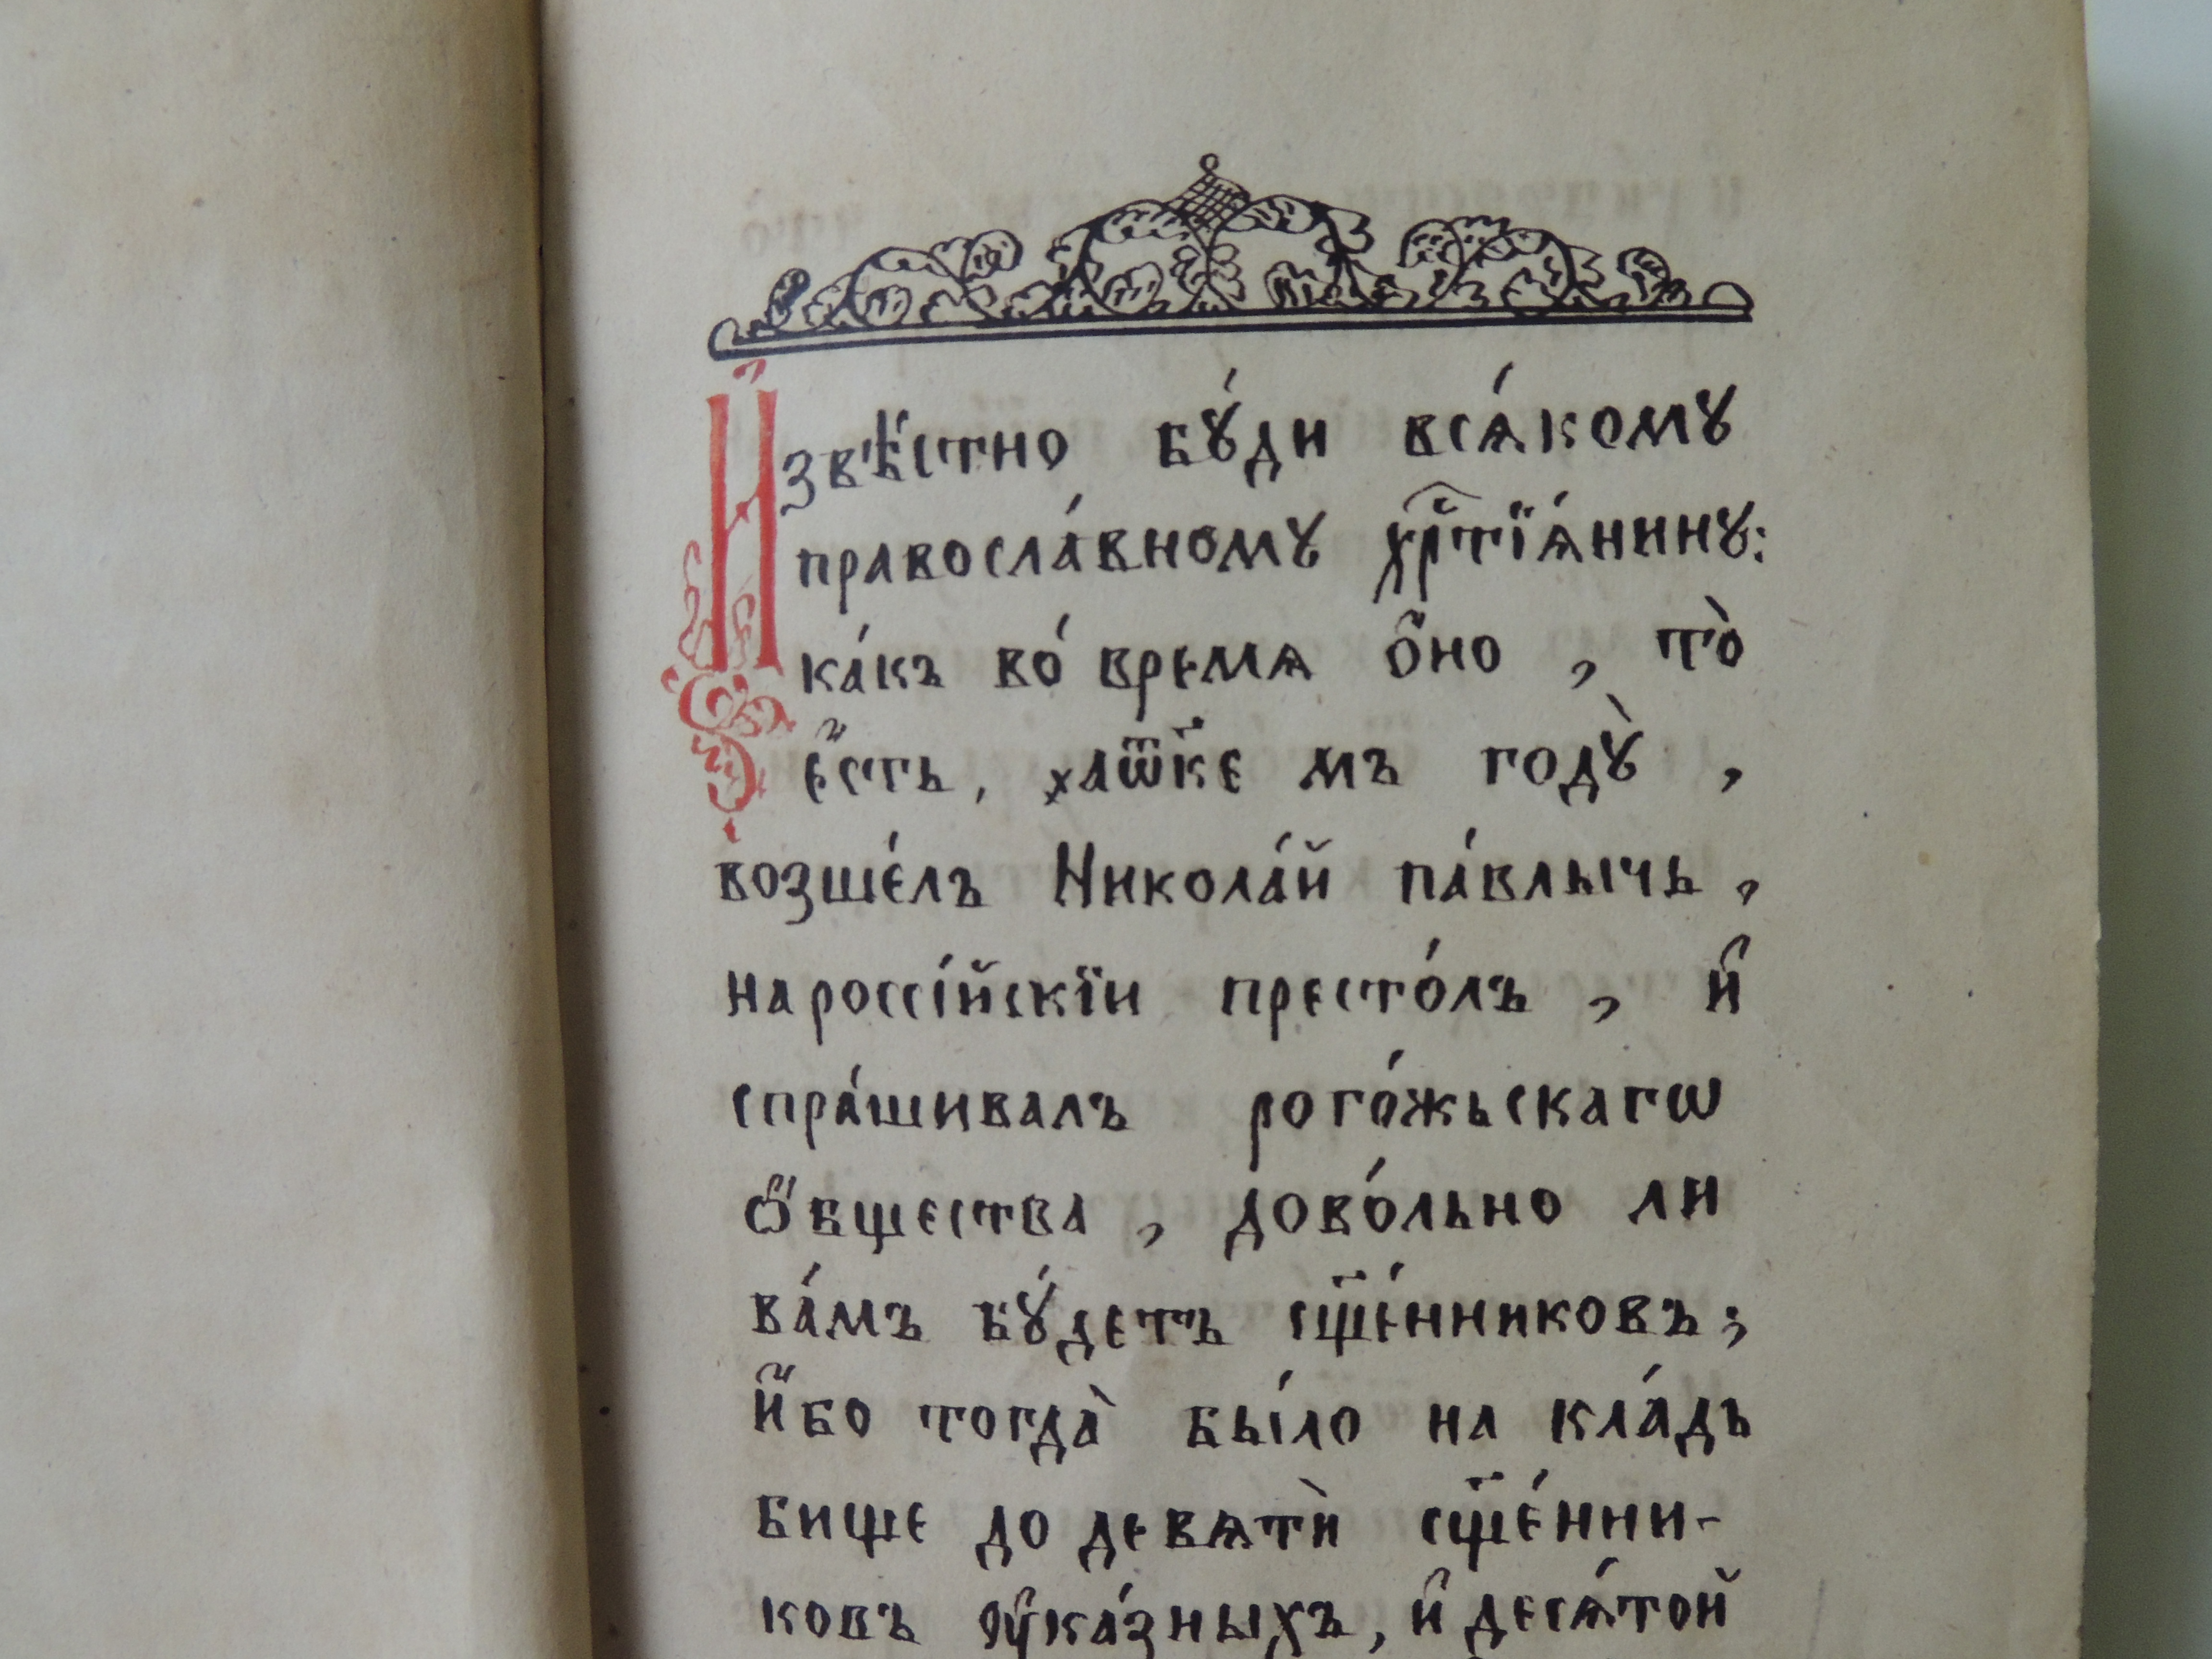 И҆звѣ́стно бꙋ́ди всѧ́комꙋ
правосла́вномꙋ хрⷭ҇тїѧ́нинꙋ:
ка́къ во́ время ѻ҆́но , то̀
є҆́сть , хаѿк҃е мъ годꙋ̀ ,
возше́лъ Никола́й па́влычь ,
на россі́йскїи престо́лъ , и҆
спра́шивалъ рого́жьскагѡ
ѻ҆́бщества , дово́льно ли
ва́мъ бꙋ́детъ сщ҃е́нниковъ ;
и҆́бо тогда̀ бы́ло на кла́дъ
бище до девѧтѝ сщ҃е́нни-
ковъ ᲂу҆ка́зныхъ , и҆ десѧ́той